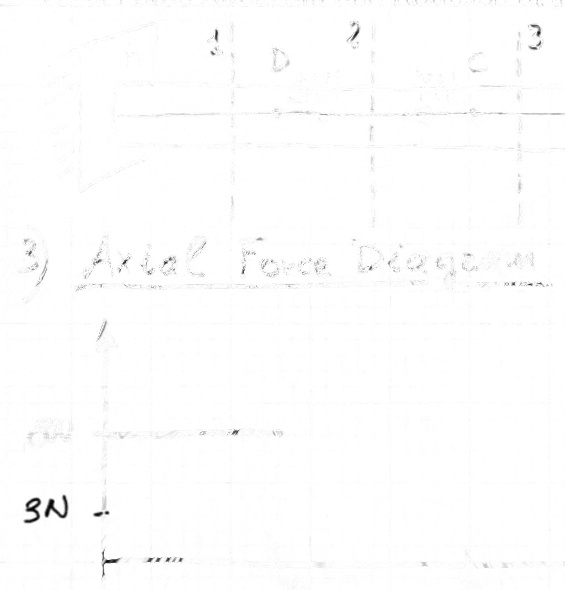 1 2 3
D C
3) Axial Force Diagram
3N